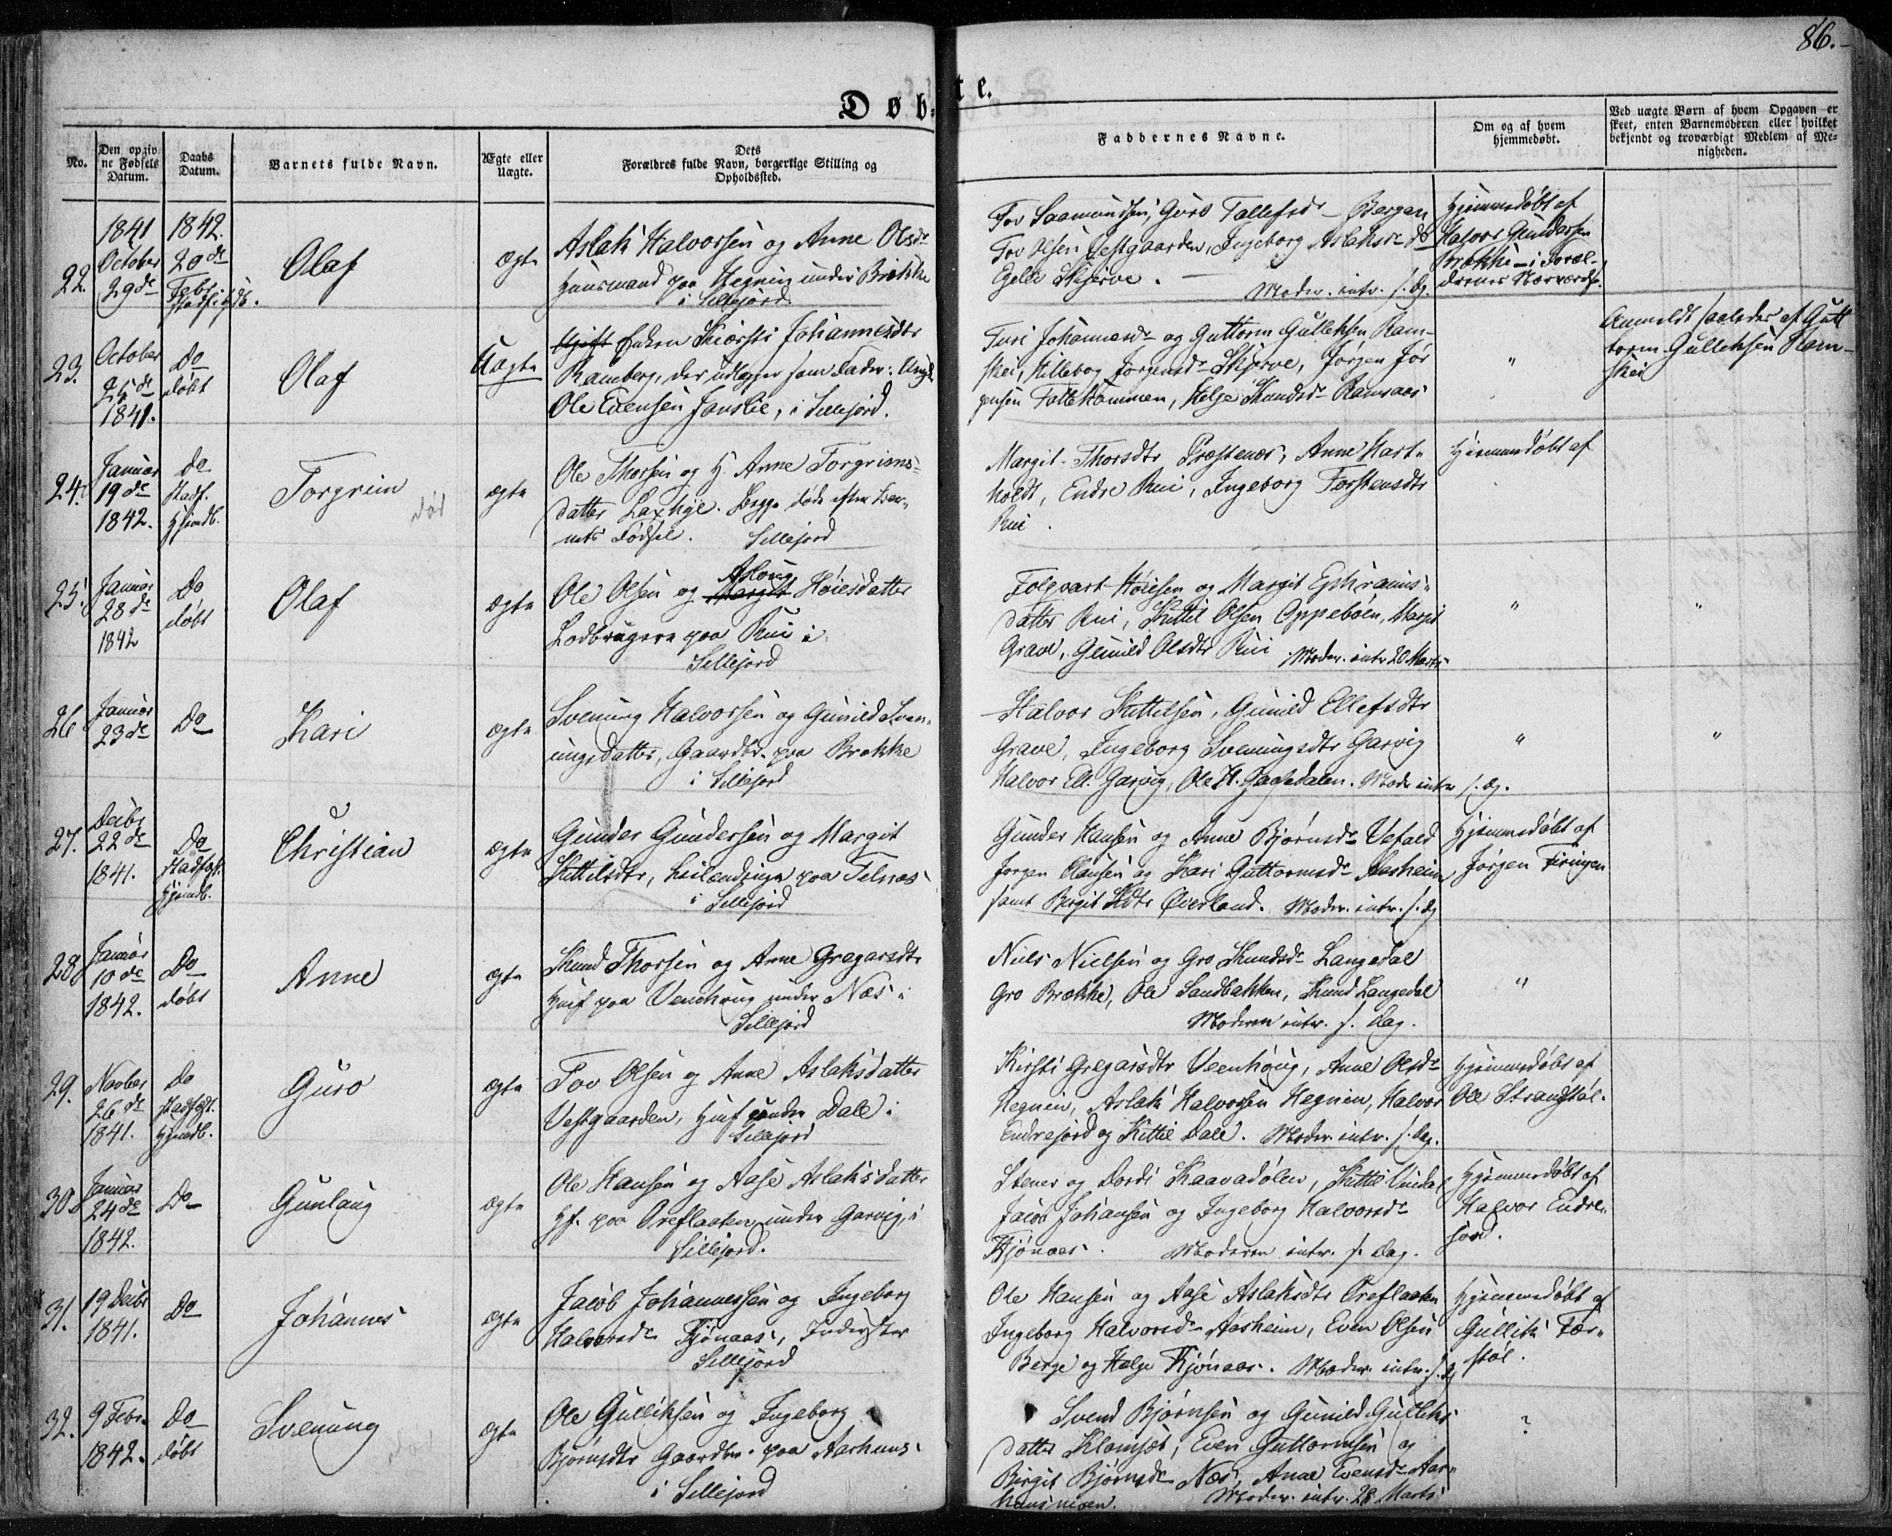 86.
Døbte.
No.
Den opgivne Fødsels Datum.
Daabs Datum.
Barnets fulde Navn.
Ægte eller Uægte.
Dets Forældres fulde Navn, borgerlige Stilling og Opholdssted.
Faddernes Navne.
Om og af hvem hjemmedøbt.
Ved uægte Børn af hvem Opgaven er skeet, enten Barnemoderen eller hvilket bekjendt og troværdigt Medlem af Menigheden.
22.
1841 October 29de
1842. 20de Febr.
Olaf
ægte
Aslak Halvorsen og Anne Olsdr
Huusmand paa Hegnin under Brække
i Sillejord.
Tov Saamundsen, Guro Tallefsdr Bergan
Tov Olsen Vestgaarden, Ingeborg Aslaksdr do
Skjerve. Moder. intr. s. Dg.
Hjemmedøbt af
Halvor Gundersen
Brække i Foræl-
drenes Nærværelse
23.
October 25de 1841.
Do døbt
Olaf
Uægte
Enken Kiersti Johannesdtr
Ramberg, der udlægger som Fader: Ungk.
Ole Evensen Jonslie, i Sillejord.
Turi Johannesdr og Guttorm Gulleksen Ram-
skei, Hillebog Jørgensdr Skjerve, Jørgen Jør
gensen Follekommen, Helje Knudsdr Ramnaas
"
Anmeldt saaledes af Gutt
torm Gulleksen Ram-
skei
24.
Januar 19de 1842.
Do Stadf. Hjemdb.
Torgrim
død
ægte
Ole Thorsen og H. Anne Torgrims-
datter Laxhye. Begge døde efter Bar-
nets Fødsel. Sillejord
Margit Thorsdtr Præstenæs, Anne Hart-
holdt, Endre Rui, Ingeborg Torstensdtr
Rui.
Hjemmedøbt af
25.
Januar 28de 1842
Do døbt
Olaf
ægte
Aslaug
Ole Olsen og Margit Høiesdatter
Lodbrugere paa Rui i
Sillejord
Folqvart Høiesen og Margit Ephraims-
datter Rui, Kittil Olsen Oppeboen, Margit
Grave, Gunild Olsdtr Rui Moder. intr. 20 Marts
"
"
26
Januar 23de
Do
Kari
ægte
Svenung Halvorsen og Gunild Sven-
ungsdatter, Gaardbr. paa Brække
i Sillejord
Halvor Kittilsen, Gunild Ellefsdtr
Grave, Ingeborg Svenungsdtr Garvig
Halvor Ell. Garvig, Ole H. Haagedalen. Moder intr s. Dg.
"
"
27.
Decbr 22de 1841.
Do Stadfgt. Hjemdb.
Christian
ægte
Gunder Gundersen og Margit
Kittilsdtr, Leilændinge paa Telnæs
i Sillejord
Gunder Hansen og Anne Bjørnsdr Vefald
Jørgen Olausen og Kari Guttormsdr Aasheim
samt Birgit Kdtr Overland. Moder. intr. s. Dg
Hjemmedøbt af
Jørgen Tiringen
28.
Januar 10de 1842.
Do døbt
Anne
ægte
Knud Thorsen og Anne Gregarsdtr
Huusf paa Venhoug under Næs i
Sillejord
Niels Nielsen og Gro Knudsdr Langedal
Gro Brække, Ole Sandbakken, Knud Langedal
Moderen intr. s. Dag.
"
29.
Novbr 26de 1841.
Do Stadfgt. Hjemdb.
Guro
ægte
Tov Olsen og Anne Aslaksdatter
Vestgaarden, Huusf under Dale i
Sillejord
Kirsti Gregarsdtr Veenhoug, Anne Olsdr
Hegnen, Aslak Halvorsen Hegnin, Halvor
Endresjord og Kittil Dale. Moder. intr. s. Dag.
Hjemmedøbt af
Ole Strandstøl.
30.
Januar 24de 1842.
Do
Gunlaug
ægte
Ole Hansen og Aase Aslaksdatter
Hf. paa Oreflaaten under Garvig, i
Sillejord.
Stener og Dordi Kaavadølen, Kittil Vindal
Jacob Johansen og Ingeborg Halvorsdr
Tjønaas. Moderen intr. s. Dag.
Hjemmedøbt af
Halvor Endre-
jord.
31.
19 Decbr 1841.
Do
Johannes
ægte
Jacob Johannessen og Ingeborg
Halvorsdr Tjønaas, Inderster
Sillejord
Ole Hansen og Aase Aslaksdtr Oreflaaten
Ingeborg Halvorsdr Aasheim, Even Olsen
Berge og Helge Tjønaas. Moder. intr. s. Dg
Hjemmedøbt af
Gullik Tær-
støl.
32.
9 Febr. 1842.
Do døbt
Svenung
ægte
Ole Gulliksen og Ingeborg
Bjørnsdtr Gaardbr. paa Aarhuus
i Sillejord
Svend Bjørnsen og Gunild Gulliks
datter Klomset, Even Guttormsen og
Birgit Bjørnsdr Næs, Anne Evensdr Aar-
huusmoen. Moder. intr. 28 Marts
?